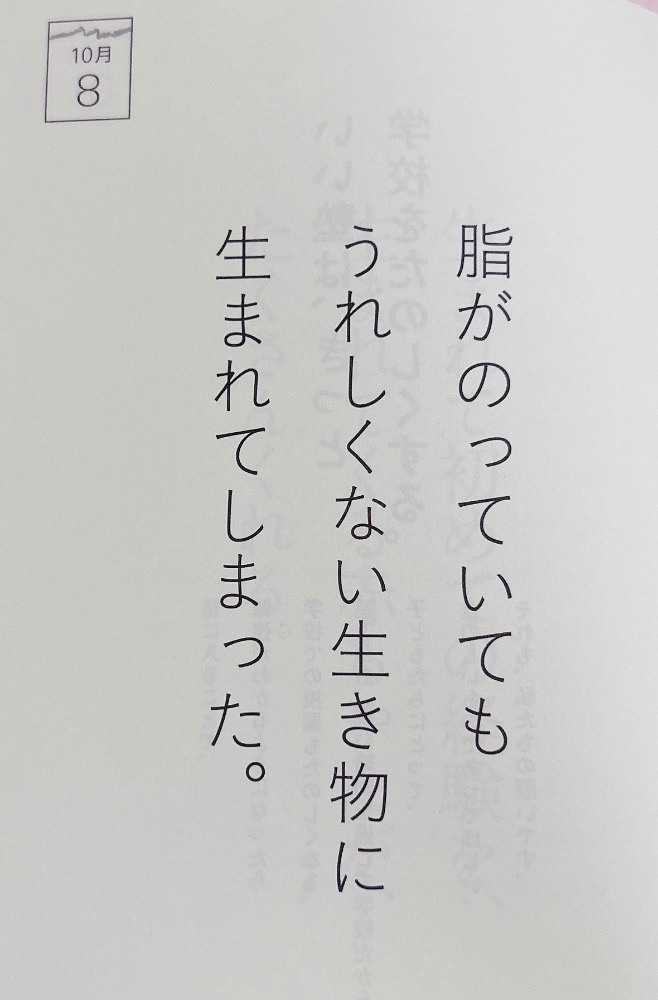 10月
8
脂がのっていても
うれしくない生き物に
生まれてしまった。